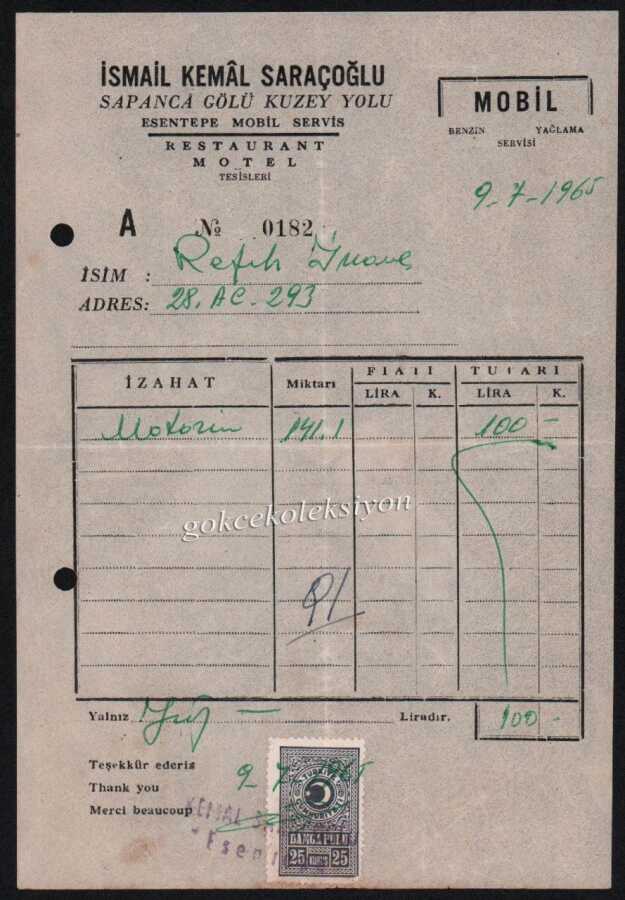 İSMAİL KEMÂL SARAÇOĞLU
SAPANCA GÖLÜ KUZEY YOLU
ESENTEPE MOBİL SERVİS
RESTAURANT
MOTEL
TESİSLERİ
MOBİL
BENZİN YAĞLAMA
SERVİSİ
9-7-1965
A № 0182
İSİM : Refik
ADRES: 28. AC. 293
İZAHAT Miktarı FİATI TUTARI
LİRA K. LİRA K.
Motorin 141.1 100 -
gokcekoleksiyon
Yalnız Yüz — Liradır. 100 -
Teşekkür ederiz
Thank you
Merci beaucoup
9 7 965
KEMAL
Esen
TÜRKİYE
CUMHURİYETİ
DAMGA PULU
25 KURUŞ 25